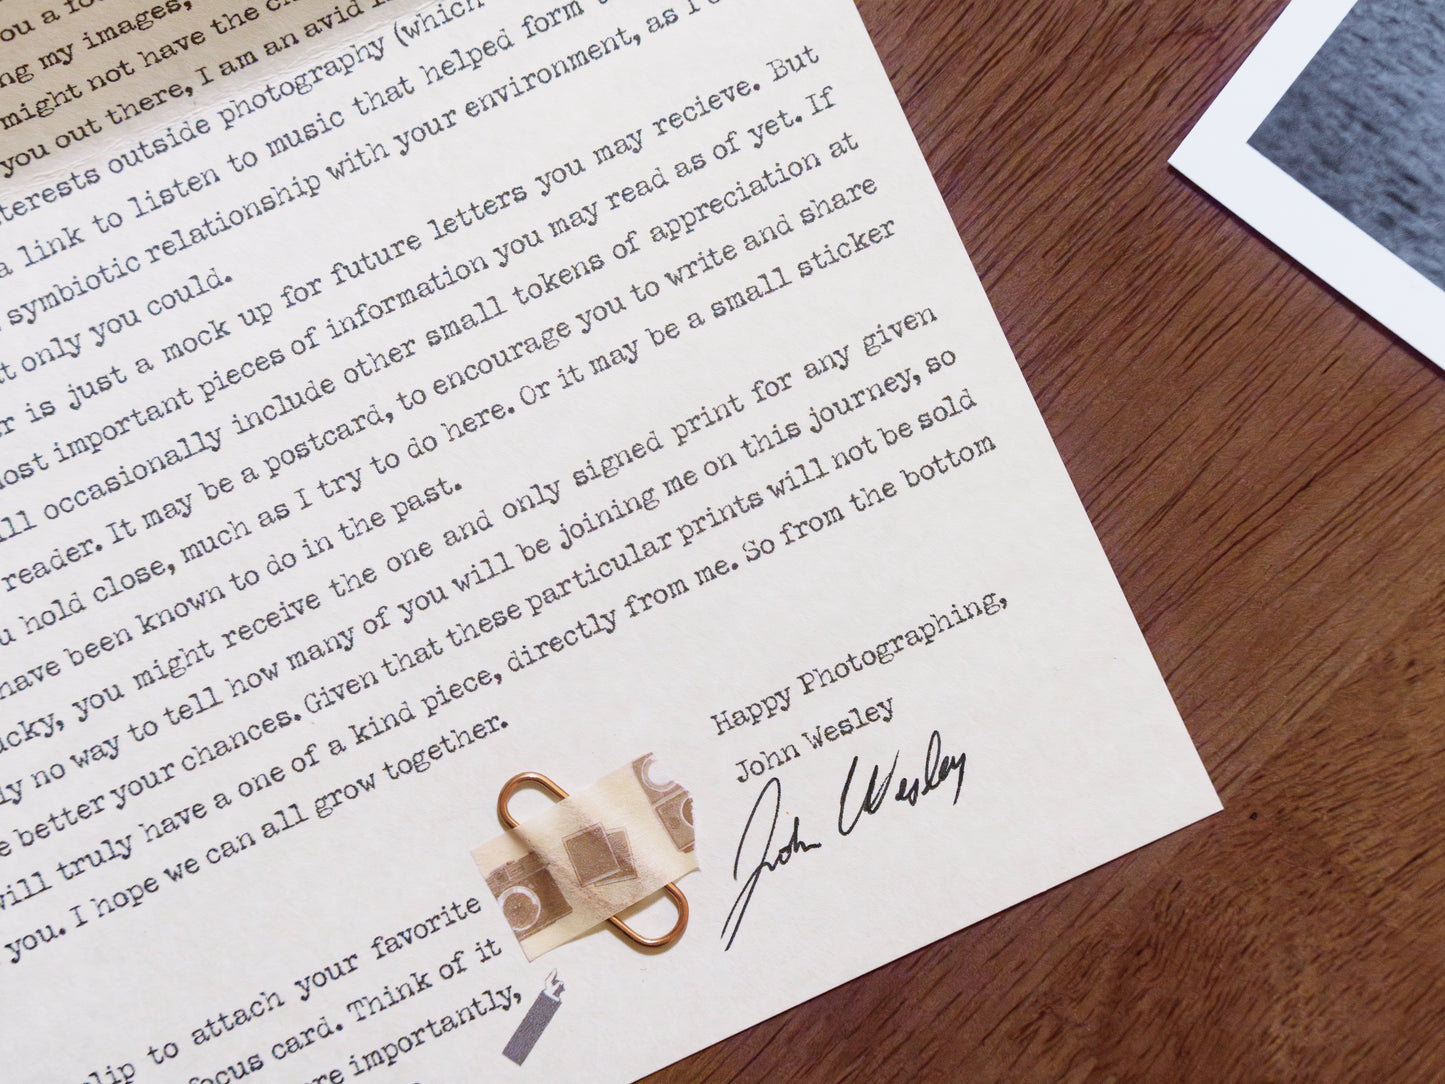 ou a fo
ng my images,
might not have the
you out there, I am an avid
terests outside photography (which
a link to listen to music that helped form
symbiotic relationship with your environment, as I
t only you could.
r is just a mock up for future letters you may recieve. But
ost important pieces of information you may read as of yet. If
ll occasionally include other small tokens of appreciation at
reader. It may be a postcard, to encourage you to write and share
u hold close, much as I try to do here. Or it may be a small sticker
have been known to do in the past.
ucky, you might receive the one and only signed print for any given
ly no way to tell how many of you will be joining me on this journey, so
e better your chances. Given that these particular prints will not be sold
will truly have a one of a kind piece, directly from me. So from the bottom
you. I hope we can all grow together.
Happy Photographing,
John Wesley
John Wesley
clip to attach your favorite
focus card. Think of it
re importantly,